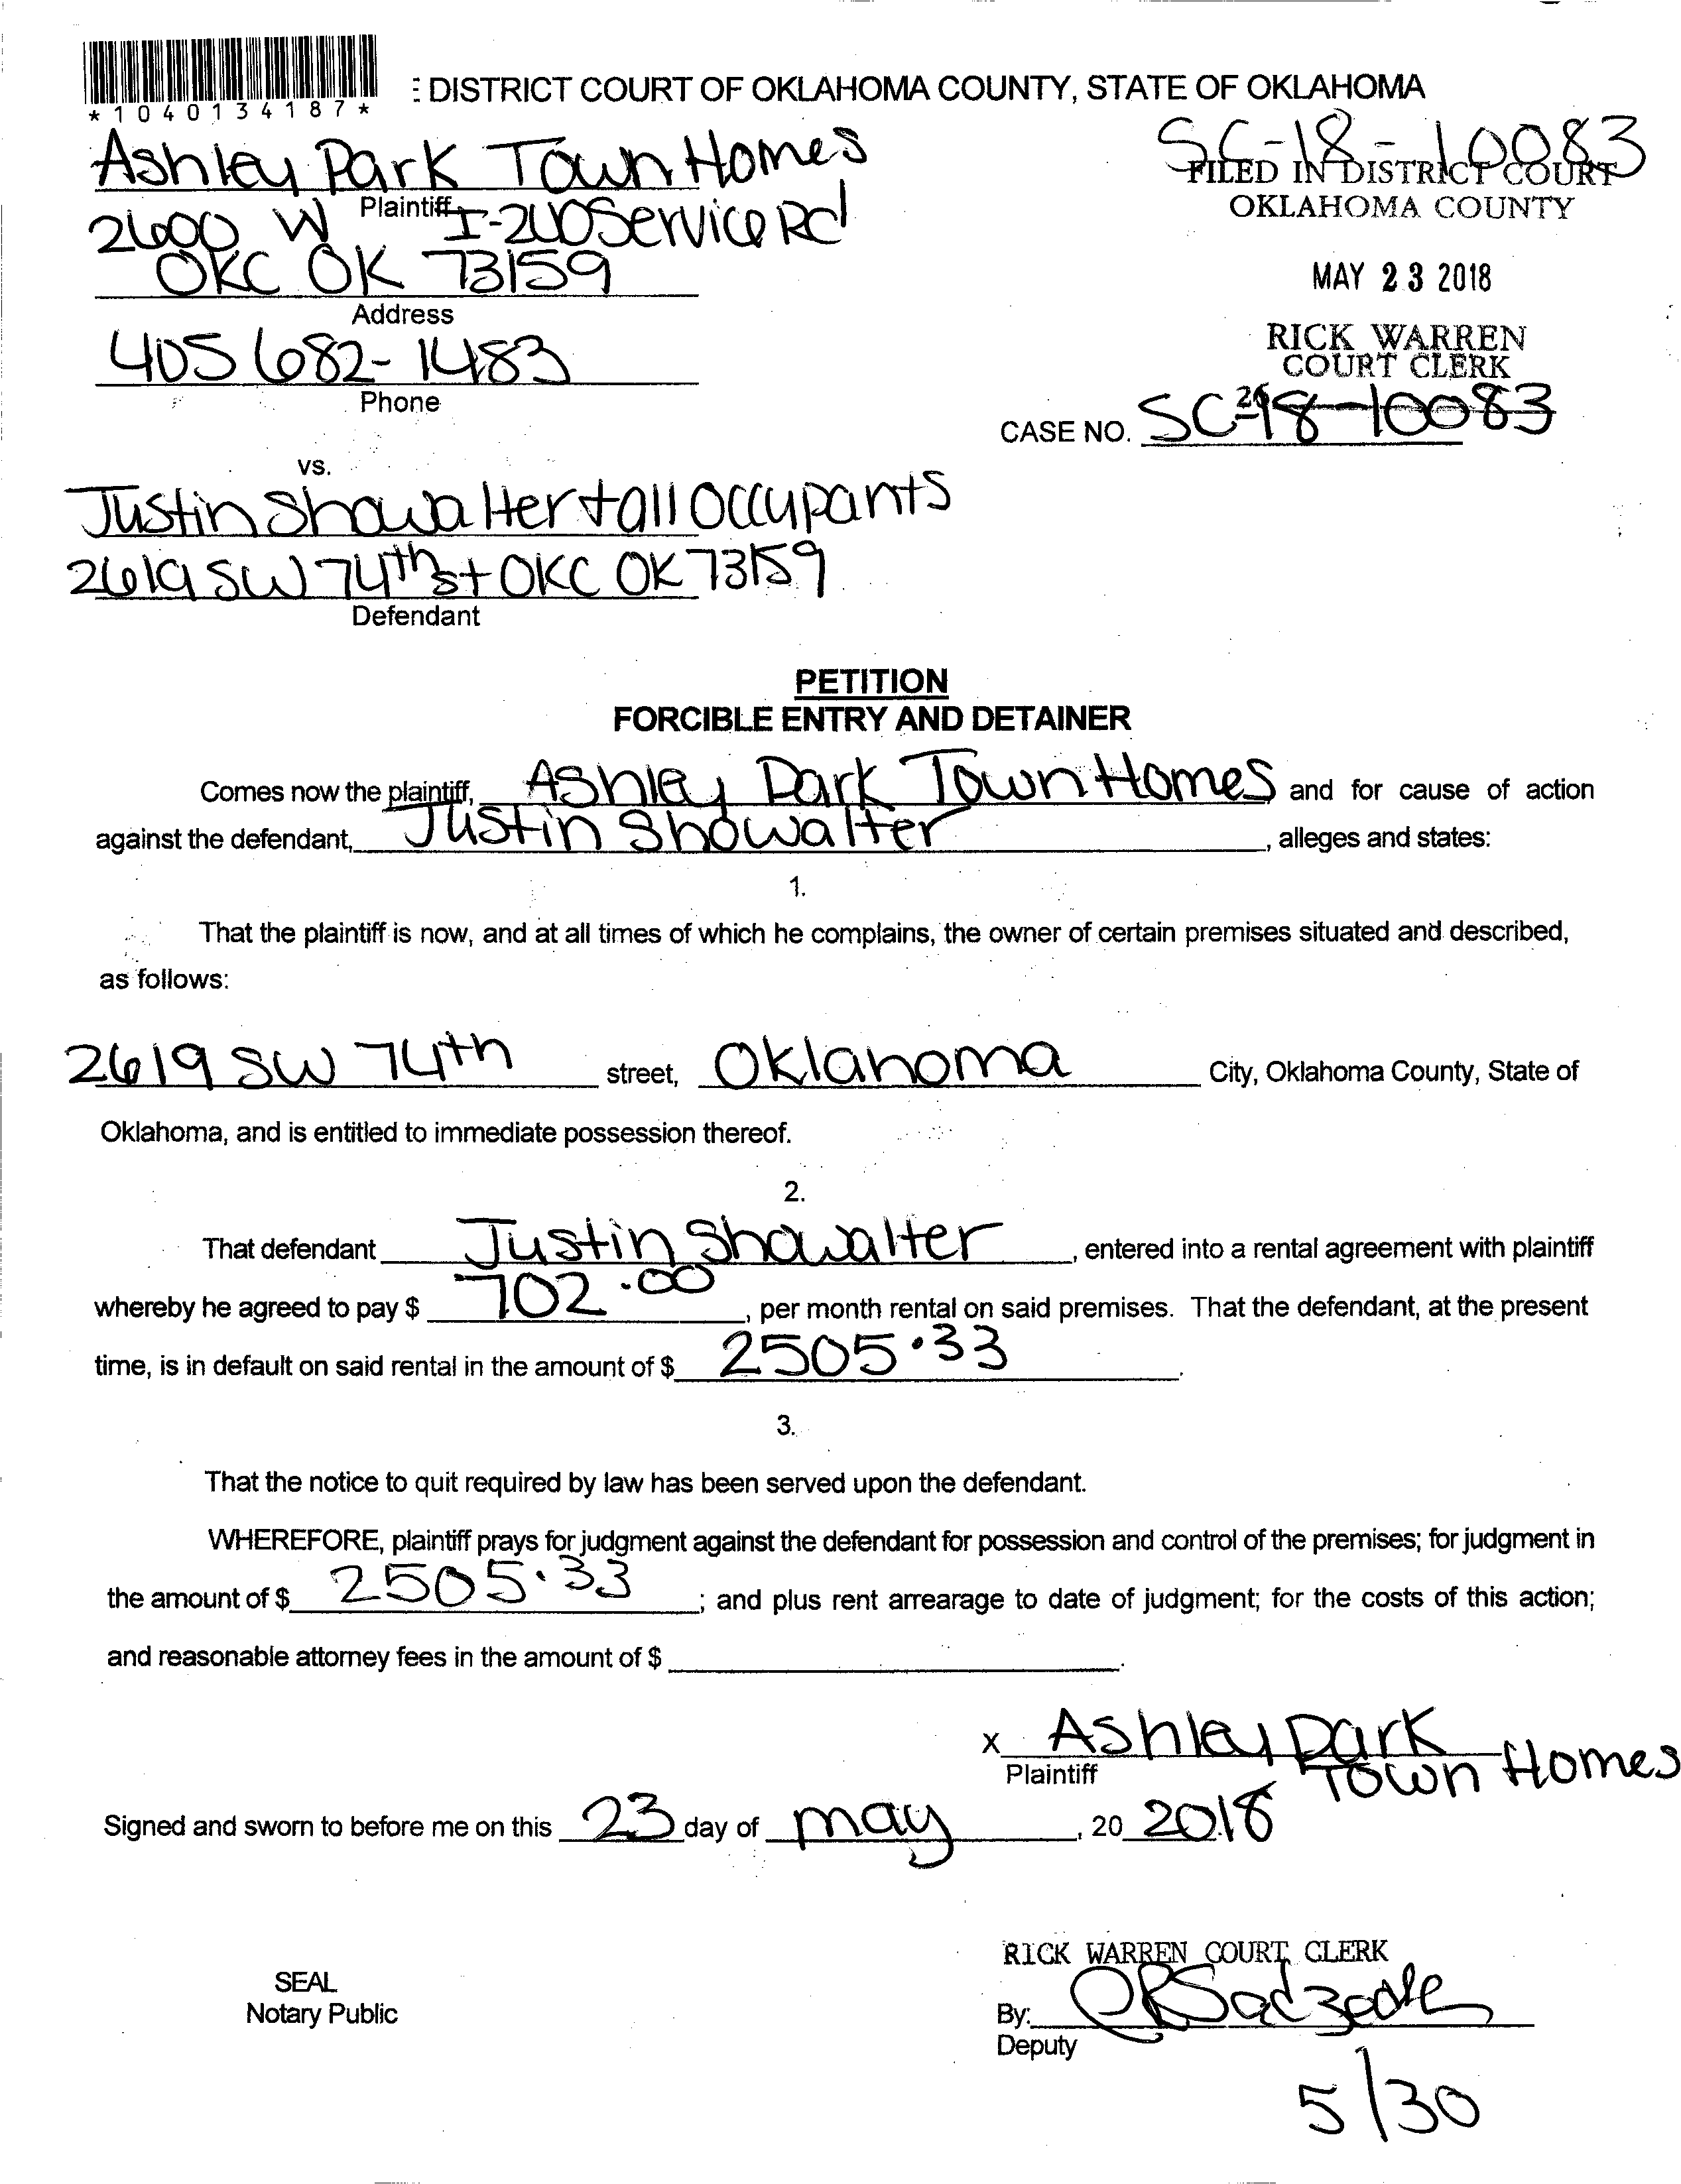 *1040134187*
DISTRICT COURT OF OKLAHOMA COUNTY, STATE OF OKLAHOMA
Ashley Park Town Homes
SC-18-10083
FILED IN DISTRICT COURT
Plaintiff
OKLAHOMA COUNTY
2600 W I-240 Service Rd
OKC OK 73159
MAY 23 2018
Address
405 682-1483
RICK WARREN
COURT CLERK
Phone
26
CASE NO. SC-18-10083
vs.
Justin Showalter + all occupants
2619 SW 74th st OKC OK 73159
Defendant
PETITION
FORCIBLE ENTRY AND DETAINER
Comes now the plaintiff, Ashley Park Town Homes and for cause of action
against the defendant, Justin Showalter, alleges and states:
1.
That the plaintiff is now, and at all times of which he complains, the owner of certain premises situated and described,
as follows:
2619 SW 74th street, Oklahoma City, Oklahoma County, State of
Oklahoma, and is entitled to immediate possession thereof.
2.
That defendant Justin Showalter, entered into a rental agreement with plaintiff
whereby he agreed to pay $ 702.00, per month rental on said premises. That the defendant, at the present
time, is in default on said rental in the amount of $ 2505.33.
3.
That the notice to quit required by law has been served upon the defendant.
WHEREFORE, plaintiff prays for judgment against the defendant for possession and control of the premises; for judgment in
the amount of $ 2505.33; and plus rent arrearage to date of judgment; for the costs of this action;
and reasonable attorney fees in the amount of $ .
x Ashley Park
Town Homes
Plaintiff
Signed and sworn to before me on this 23 day of may, 20 2018
RICK WARREN COURT CLERK
SEAL
Notary Public
By:
Deputy
5/30